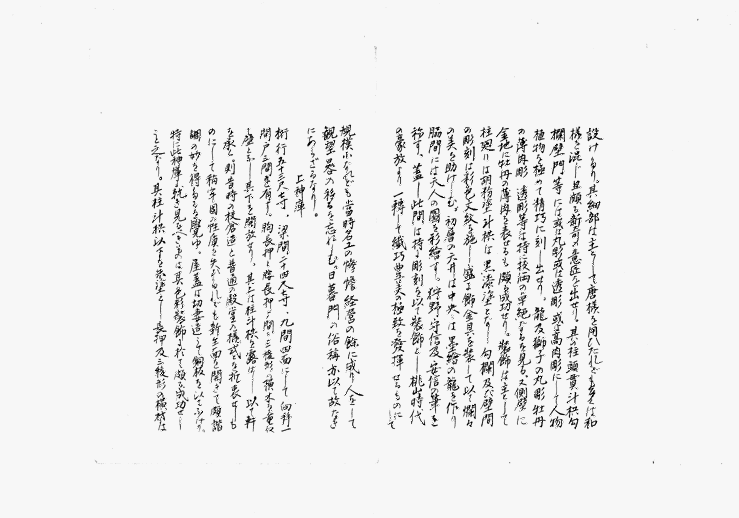 設けあり。其細部は主として唐様を用ひたれども又は和
様を混じ且頗る新奇の意匠を出せり。其の柱頭貫斗栱勾
欄壁門等には或は丸彫或は透彫或は高肉彫にして人物
植物を極めて精巧に刻し出せり。龍及獅子の丸彫牡丹
の薄肉彫透彫等は特に技両の卓絶なるを見る。又側壁に
金地に牡丹の薄肉を表せるも頗る成功せり。装飾は主として
柱廻りは胡粉塗斗栱は黒漆塗となし勾欄及び壁間
の彫刻は彩色文紋を施し盛に飾金具を装して以て爛々
の美を助けしむ。初層の天井は中央には墨絵の龍を作り
脇間には天人の図を彩絵す。狩野守信及安信の筆を
称す。蓋し此門は特に彫刻を以て装飾とし桃山時代
の豪放より一轉して繊巧豊美の極致を發揮せるものにして
規模小なれども当時名工の惨憺経営の餘に成り人をして
観望晷の移るを忘れしむ。日暮門の俗稱亦以て故なき
にあらざるなり。
上神庫
桁行五十三尺七寸、梁間二十四尺七寸、九間四面にして向拜一
間戸三間を有す。胸長押と腰長押の間に三稜形の横木を重ね
て壁となし其下を開放せり。其上は柱斗栱を露はし以て軒
を承く。則昔時の校倉造と普通の殿堂の様式とを折衷せしも
のにして稍本固の性質を失ひたれども新生面を開きて頗る諧
調の妙を得たるを覺ゆ。屋蓋は切妻造にして銅板を以てふけり。
特に此神庫に就き見るべきものは其色彩装飾に於て頗る成功せし
こと之なり。其柱斗栱以下を朱塗とし長押及三稜形の横材は